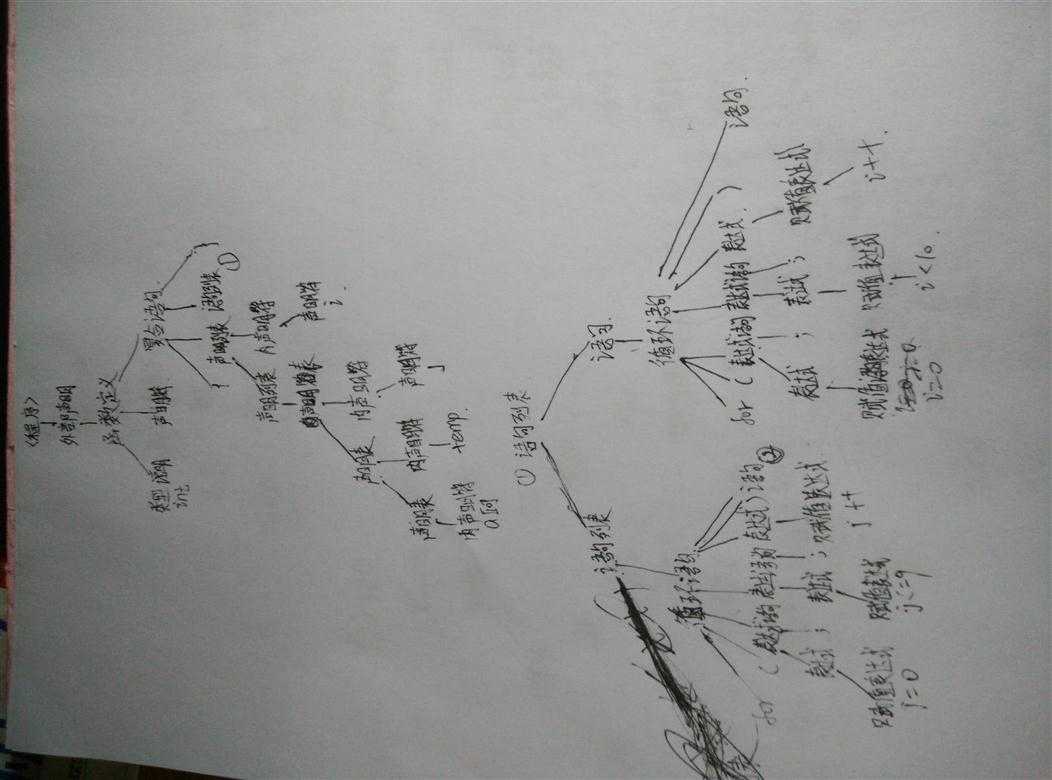 <程序>
外部声明
函数定义
类型说明 声明符 复合语句
int
{ 声明列表 语句列表 ① }
声明列表 内声明符
声明列表 声明符
声明列表 内声明符 i
声明列表 内声明符 声明符
内声明符 temp j
① 语句列表
语句列表 语句
循环语句 循环语句
for ( 表达式语句 表达式语句 表达式 ) 语句 ②
for ( 表达式语句 表达式语句 表达式 ) 语句
表达式 ; 表达式 ; 赋值表达式
表达式 ; 表达式 ; 赋值表达式
赋值表达式 赋值表达式 j++
赋值表达式 赋值表达式 i++
j=0
i=0 i<10